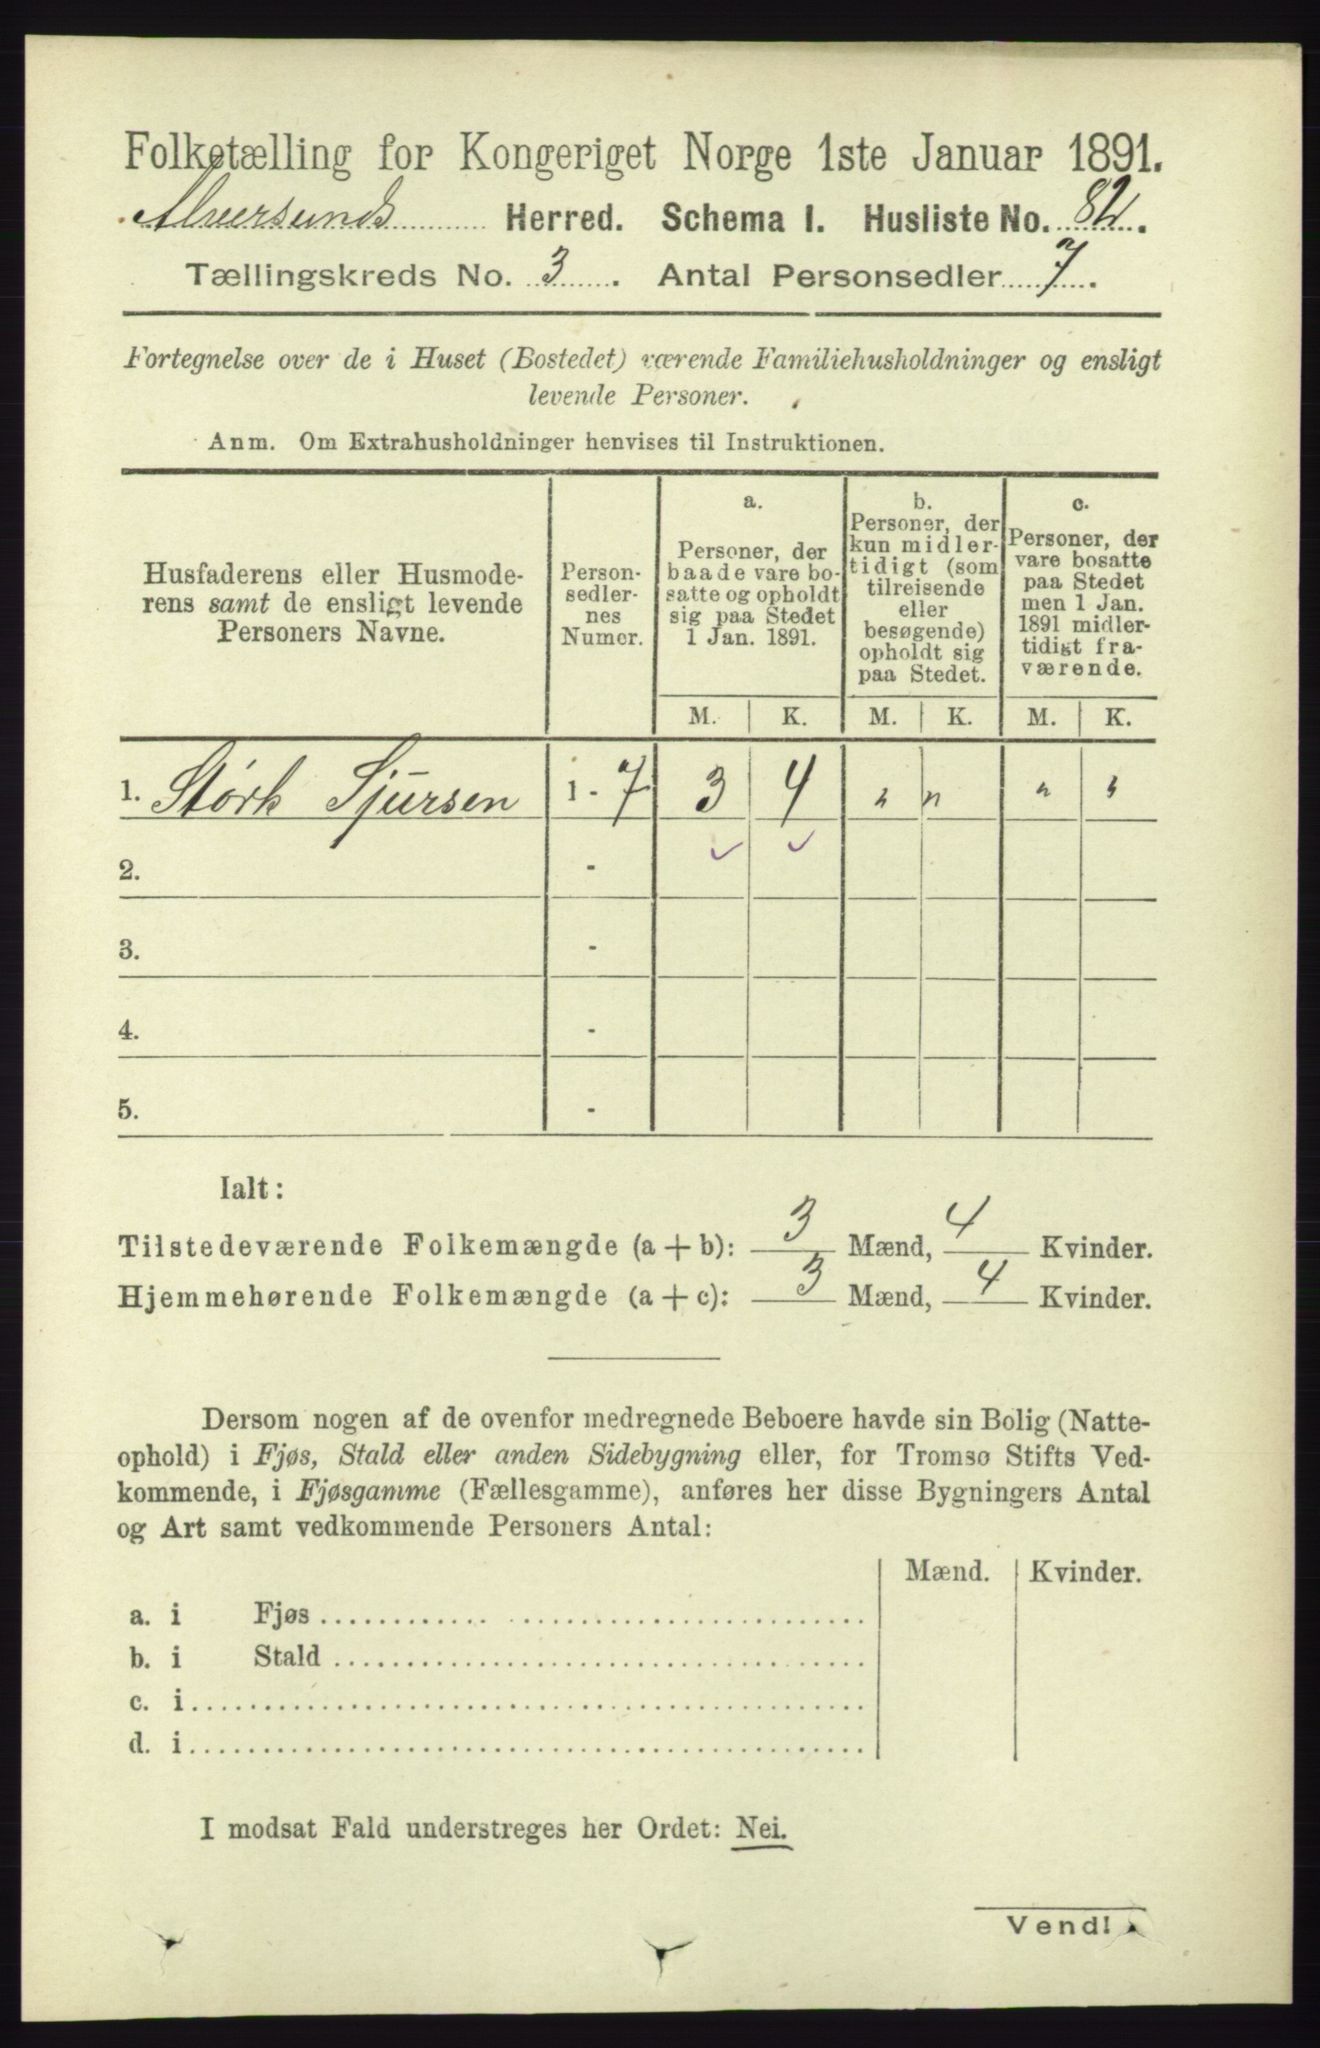 Folketælling for Kongeriget Norge 1ste Januar 1891.
Alversunds Herred. Schema I. Husliste No. 82.
Tællingskreds No. 3. Antal Personsedler 7.
Fortegnelse over de i Huset (Bostedet) værende Familiehusholdninger og ensligt
levende Personer.
Anm. Om Extrahusholdninger henvises til Instruktionen.
Husfaderens eller Husmode-
rens samt de ensligt levende
Personers Navne.
Person-
sedler-
nes
Numer.
a.
Personer, der
baade vare bo-
satte og opholdt
sig paa Stedet
1 Jan. 1891.
b.
Personer, der
kun midler-
tidigt (som
tilreisende
eller
besøgende)
opholdt sig
paa Stedet.
c.
Personer, der
vare bosatte
paa Stedet
men 1 Jan.
1891 midler-
tidigt fra-
værende.
M. K. M. K. M. K.
1. Størk Sjursen 1 - 7 3 4 " " " "
2. -
3. -
4. -
5. -
Ialt:
Tilstedeværende Folkemængde (a + b): 3 Mænd, 4 Kvinder.
Hjemmehørende Folkemængde (a + c): 3 Mænd, 4 Kvinder.
Dersom nogen af de ovenfor medregnede Beboere havde sin Bolig (Natte-
ophold) i Fjøs, Stald eller anden Sidebygning eller, for Tromsø Stifts Ved-
kommende, i Fjøsgamme (Fællesgamme), anføres her disse Bygningers Antal
og Art samt vedkommende Personers Antal:
Mænd. Kvinder.
a. i Fjøs
b. i Stald
c. i
d. i
I modsat Fald understreges her Ordet: Nei.
Vend!